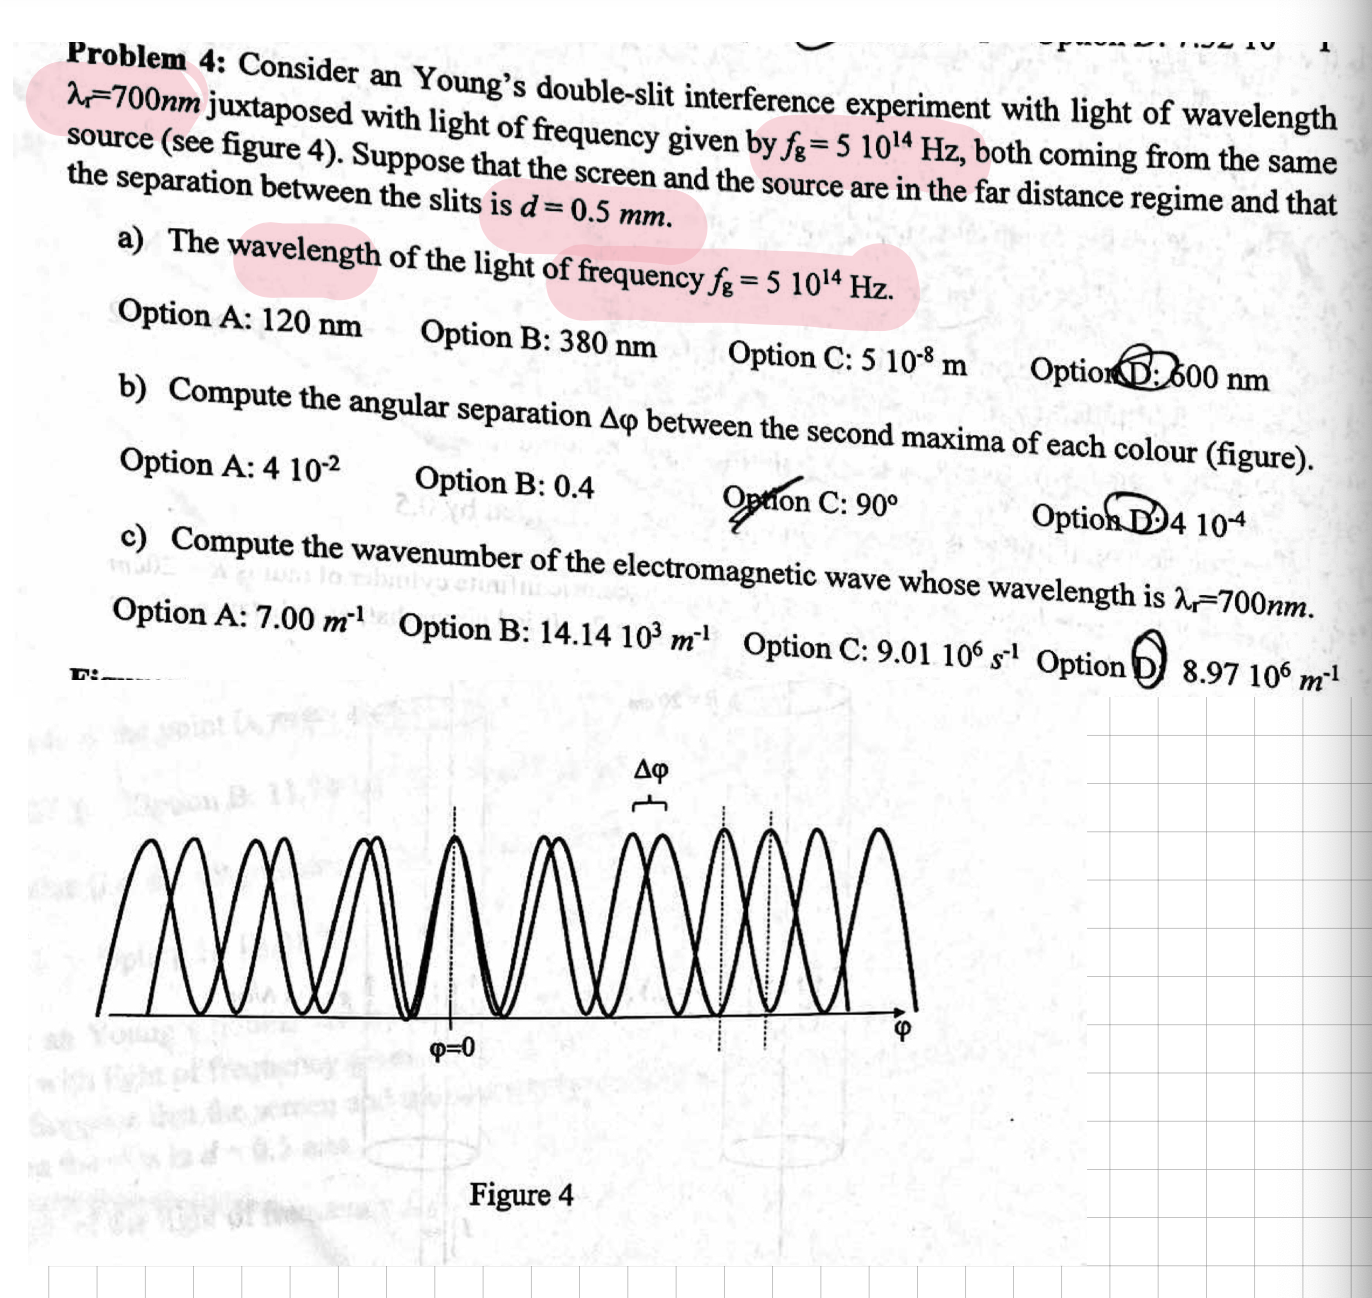 Problem 4: Consider an Young's double-slit interference experiment with light of wavelength
λr=700nm juxtaposed with light of frequency given by fg= 5 10¹⁴ Hz, both coming from the same
source (see figure 4). Suppose that the screen and the source are in the far distance regime and that
the separation between the slits is d = 0.5 mm.
a) The wavelength of the light of frequency fg = 5 10¹⁴ Hz.
Option A: 120 nm Option B: 380 nm Option C: 5 10⁻⁸ m Option D: 600 nm
b) Compute the angular separation Δφ between the second maxima of each colour (figure).
Option A: 4 10⁻² Option B: 0.4 Option C: 90º Option D: 4 10⁻⁴
c) Compute the wavenumber of the electromagnetic wave whose wavelength is λr=700nm.
Option A: 7.00 m⁻¹ Option B: 14.14 10³ m⁻¹ Option C: 9.01 10⁶ s⁻¹ Option D) 8.97 10⁶ m⁻¹
Δφ
φ=0
φ
Figure 4